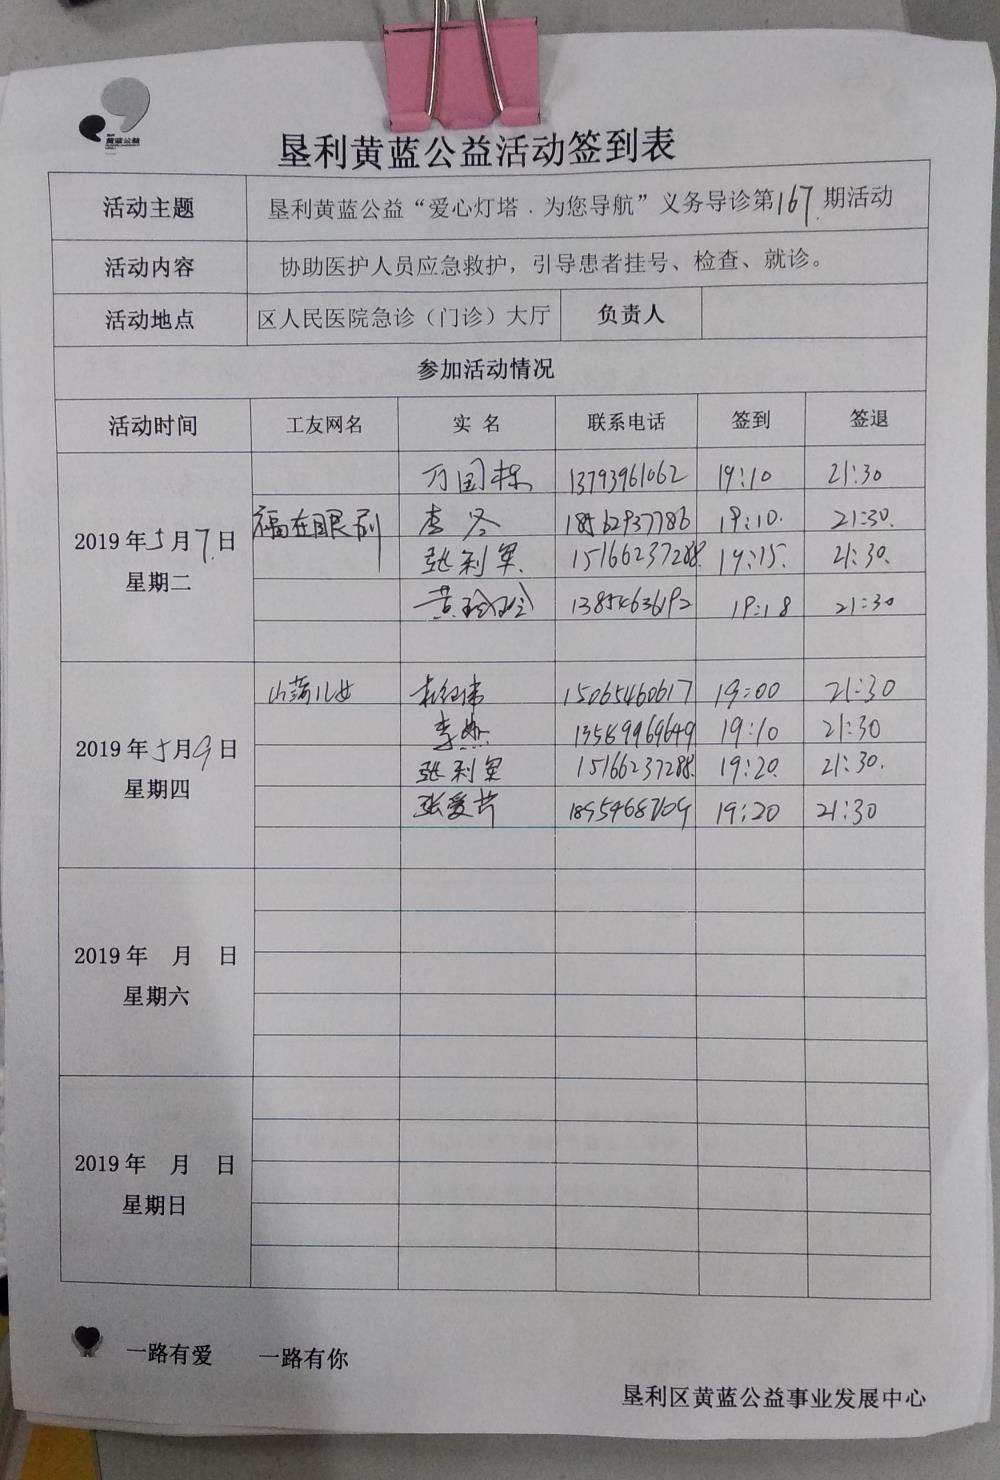 黄蓝公益
垦利黄蓝公益活动签到表
活动主题 垦利黄蓝公益“爱心灯塔．为您导航”义务导诊第167期活动
活动内容 协助医护人员应急救护，引导患者挂号、检查、就诊。
活动地点 区人民医院急诊（门诊）大厅 负责人
参加活动情况
活动时间 工友网名 实 名 联系电话 签到 签退
万国栋 13793961062 19:10 21:30
2019年5月7日
星期二
福在眼前 李冬 18562937786 19:10. 21:30.
张利军 15166237288. 19:15. 21:30.
黄玲玲 19:18 21:30
山菏儿女 15065460617 19:00 21:30
2019年5月9日
星期四
李 13589969649 19:10 21:30
张利军 15166237288. 19:20. 21:30.
张爱芹 19:20 21:30
2019年 月 日
星期六
2019年 月 日
星期日
一路有爱 一路有你
垦利区黄蓝公益事业发展中心